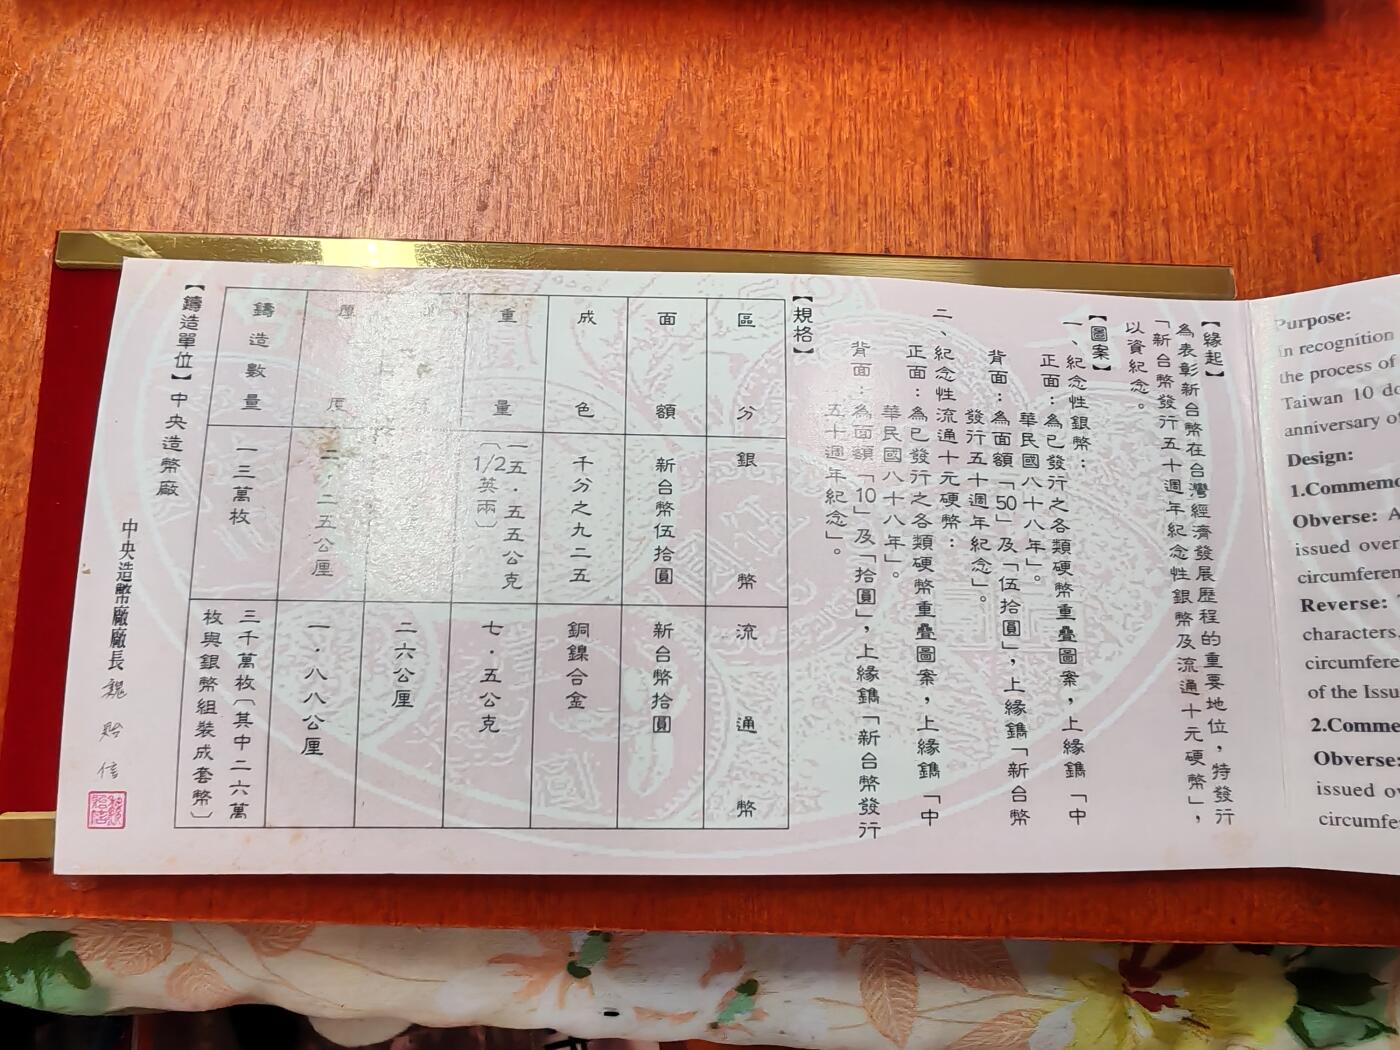 【緣起】
為表彰新台幣在台灣經濟發展歷程的重要地位，特發行
「新台幣發行五十週年紀念性銀幣及流通十元硬幣」，
以資紀念。
【圖案】
一、紀念性銀幣：
正面：為已發行之各類硬幣重疊圖案，上緣鐫「中
華民國八十八年」。
背面：為面額「50」及「伍拾圓」，上緣鐫「新台幣
發行五十週年紀念」。
二、紀念性流通十元硬幣：
正面：為已發行之各類硬幣重疊圖案，上緣鐫「中
華民國八十八年」。
背面：為面額「10」及「拾圓」，上緣鐫「新台幣發行
五十週年紀念」。
【規格】
區分 銀幣 流通幣
面額 新台幣伍拾圓 新台幣拾圓
成色 千分之九二五 銅鎳合金
重量 一五．五五公克
〔1/2英兩〕 七．五公克
二六公厘
厚度 二．二五公厘 一．八八公厘
鑄造數量 一三萬枚 三千萬枚〔其中二六萬
枚與銀幣組裝成套幣〕
【鑄造單位】中央造幣廠
中央造幣廠廠長
Purpose:
In recognition
the process of
Taiwan 10 do
anniversary of
Design:
1.Commemo
Obverse: A
issued over
circumferen
Reverse:
characters,
circumfere
of the Issu
2.Comme
Obverse:
issued ov
circumfe